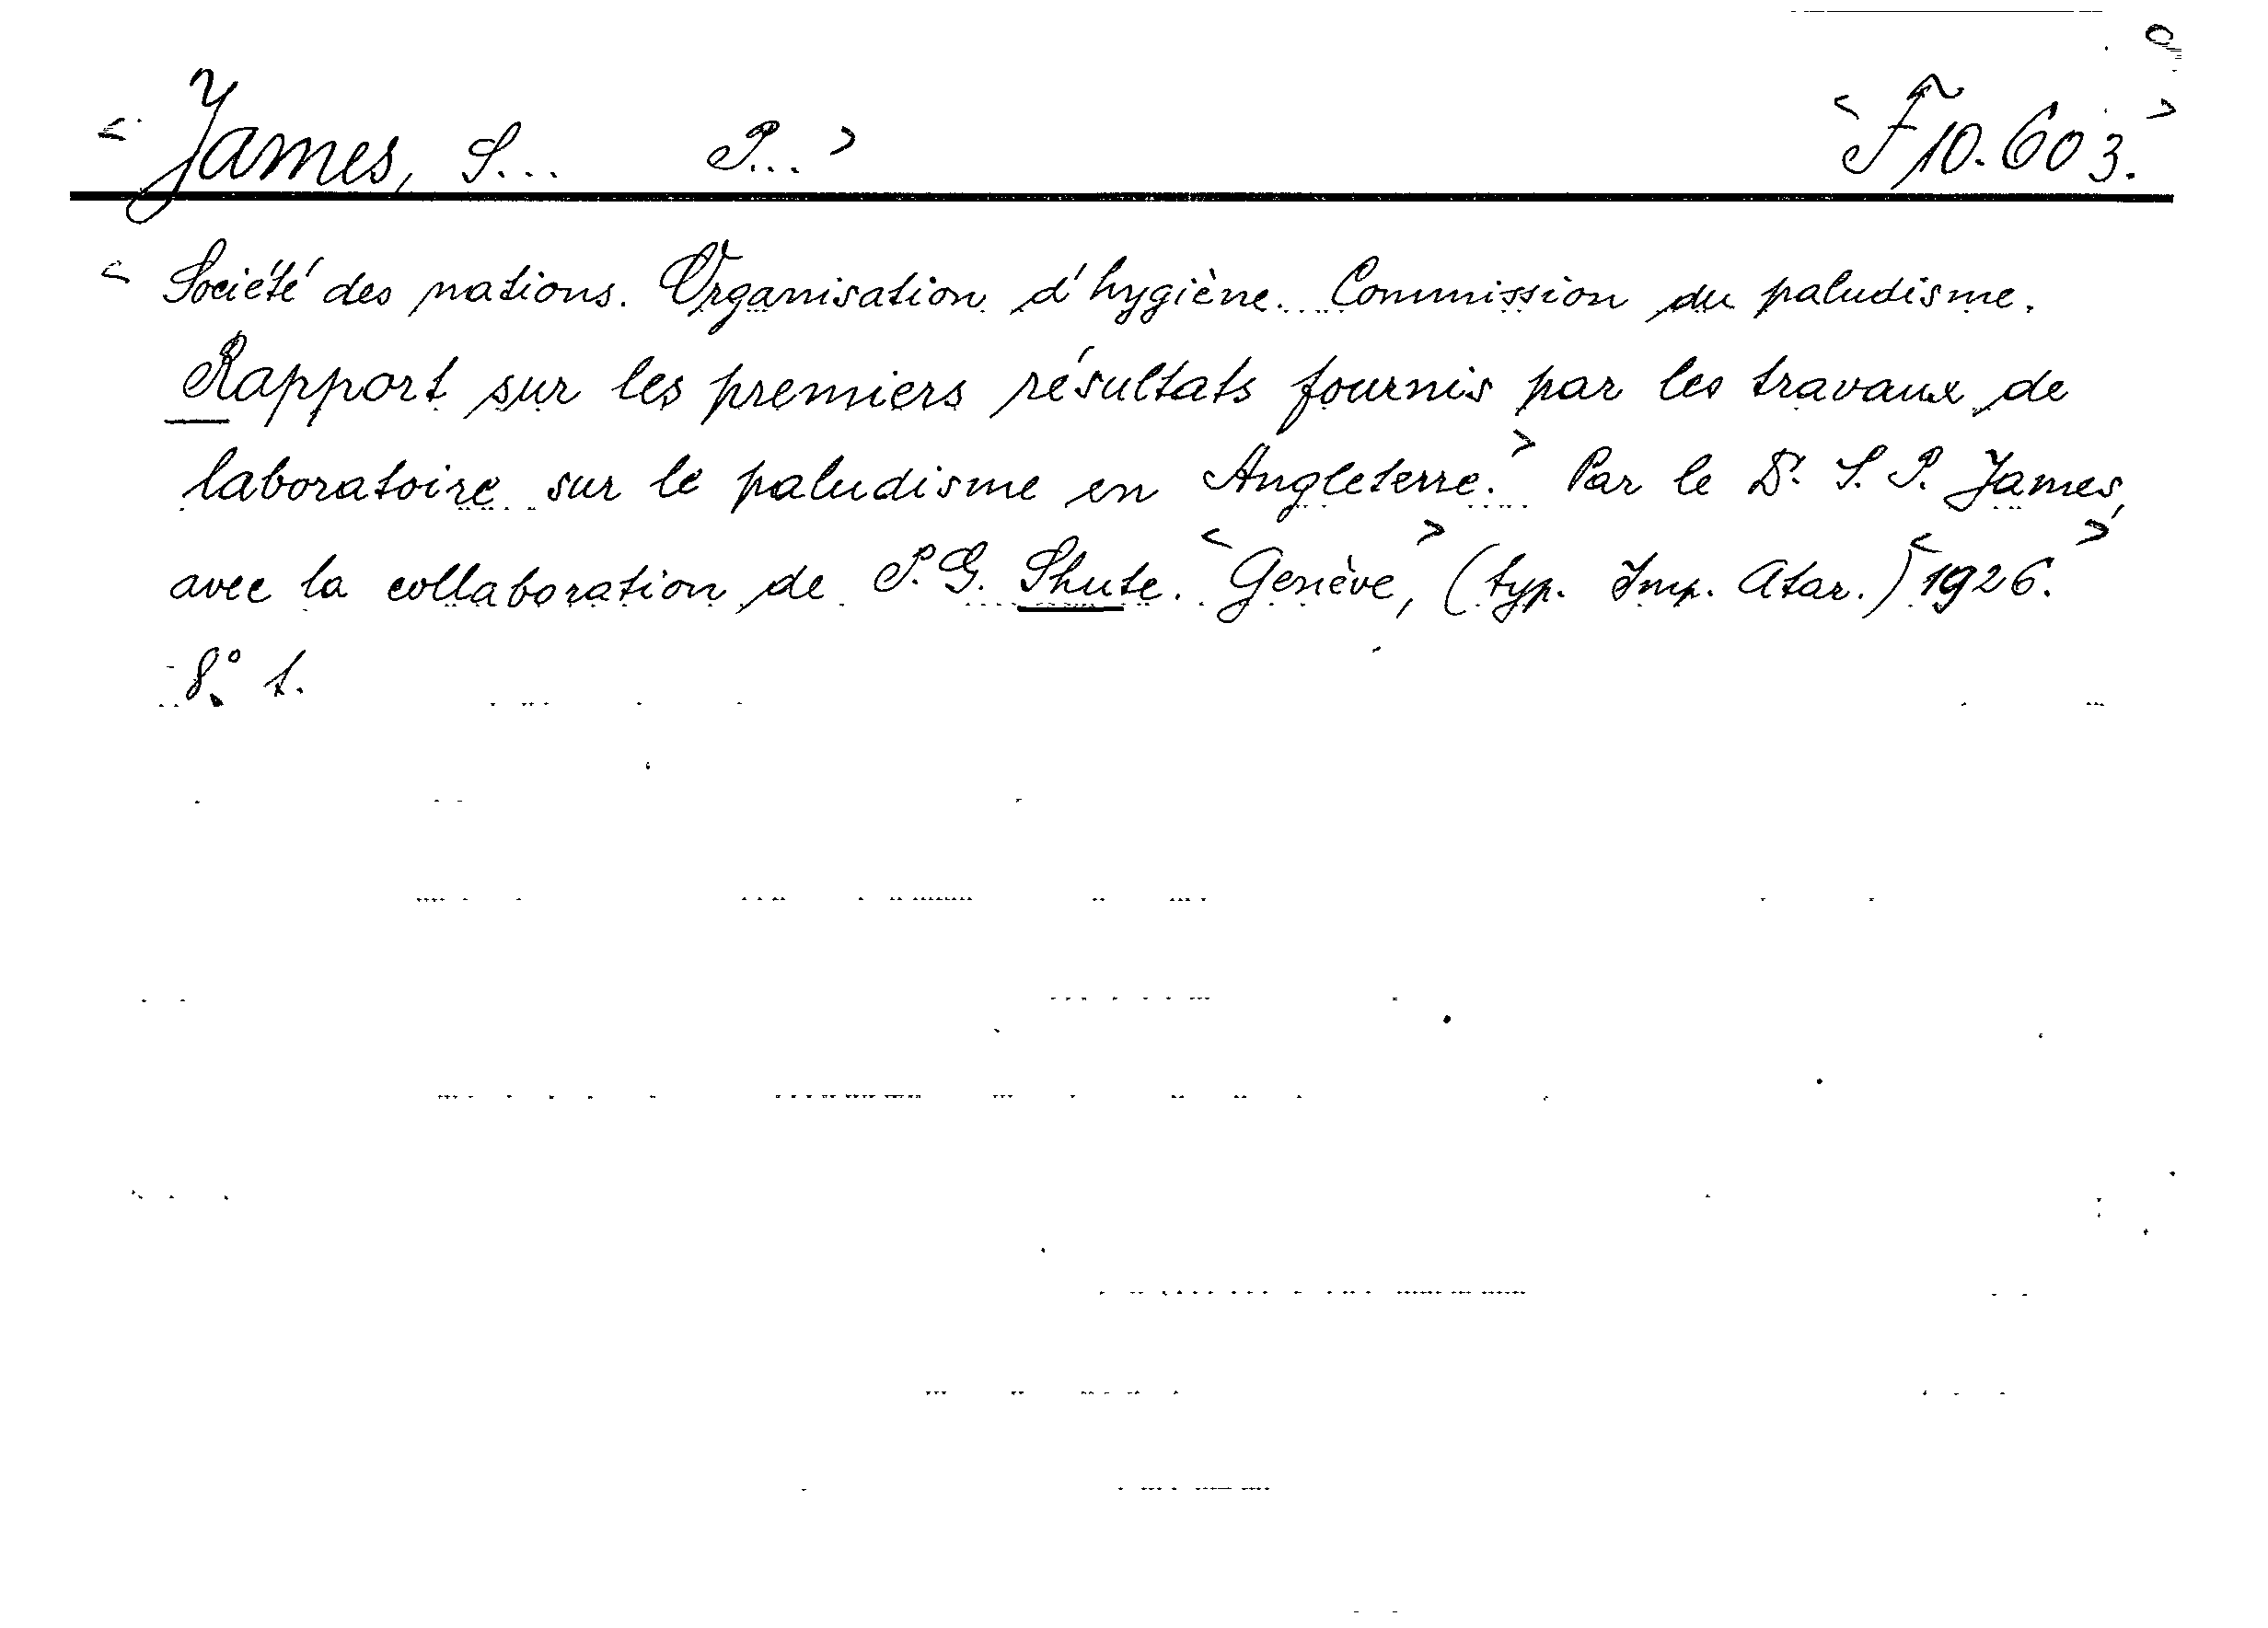 < James, S... P... > < F 10.603. >
< Société des nations. Organisation d'hygiène. Commission du paludisme.
Rapport sur les premiers résultats fournis par les travaux de
laboratoire sur le paludisme en Angleterre. > Par le Dr. S. P. James,
avec la collaboration de P. G. Shute. < Genève, > (typ. Imp. Atar.) < 1926. >
8° t.